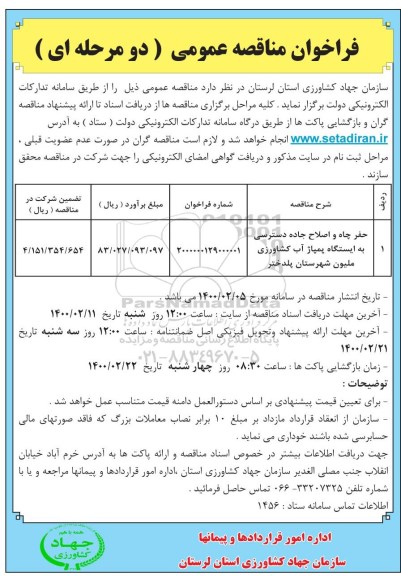 فراخوان مناقصه عمومی ( دو مرحله ای )
سازمان جهاد کشاورزی استان لرستان در نظر دارد مناقصه عمومی ذیل را از طریق سامانه تدارکات
الکترونیکی دولت برگزار نماید . کلیه مراحل برگزاری مناقصه ها از دریافت اسناد تا ارائه پیشنهاد مناقصه
گران و بازگشایی پاکت ها از طریق درگاه سامانه تدارکات الکترونیکی دولت ( ستاد ) به آدرس
www.setadiran.ir انجام خواهد شد و لازم است مناقصه گران در صورت عدم عضویت قبلی ،
مراحل ثبت نام در سایت مذکور و دریافت گواهی امضای الکترونیکی را جهت شرکت در مناقصه محقق
سازند .
ردیف شرح مناقصه شماره فراخوان مبلغ برآورد ( ریال ) تضمین شرکت در
مناقصه ( ریال )
۱ حفر چاه و اصلاح جاده دسترسی
به ایستگاه پمپاژ آب کشاورزی
ملیون شهرستان پلدختر
۸۳/۰۲۷/۰۹۳/۰۹۷ ۴/۱۵۱/۳۵۴/۶۵۴
ParsNamadData
پایگاه اطلاع رسانی مناقصه و مزایده
۰۲۱-۸۸۳۴۹۶۷۰-۵
- تاریخ انتشار مناقصه در سامانه مورخ ۱۴۰۰/۰۲/۰۵ می باشد .
- آخرین مهلت دریافت اسناد مناقصه از سایت : ساعت ۱۲:۰۰ روز شنبه تاریخ ۱۴۰۰/۰۲/۱۱
- آخرین مهلت ارائه پیشنهاد وتحویل فیزیکی اصل ضمانتنامه : ساعت ۱۲:۰۰ روز سه شنبه تاریخ
۱۴۰۰/۰۲/۲۱
- زمان بازگشایی پاکت ها : ساعت ۰۸:۳۰ روز چهار شنبه تاریخ ۱۴۰۰/۰۲/۲۲
توضیحات :
- برای تعیین قیمت پیشنهادی بر اساس دستورالعمل دامنه قیمت متناسب عمل خواهد شد .
- سازمان از انعقاد قرارداد مازداد بر مبلغ ۱۰ برابر نصاب معاملات بزرگ که فاقد صورتهای مالی
حسابرسی شده باشند خوداری می نماید .
جهت دریافت اطلاعات بیشتر در خصوص اسناد مناقصه و ارائه پاکت ها به آدرس خرم آباد خیابان
انقلاب جنب مصلی الغدیر سازمان جهاد کشاورزی استان ،اداره امور قراردادها و پیمانها مراجعه و یا با
شماره تلفن ۳۳۲۰۷۳۲۵- ۰۶۶ تماس حاصل فرمائید .
اطلاعات تماس سامانه ستاد : ۱۴۵۶
اداره امور قراردادها و پیمانها
سازمان جهاد کشاورزی استان لرستان
همه با هم
جهاد
کشاورزی